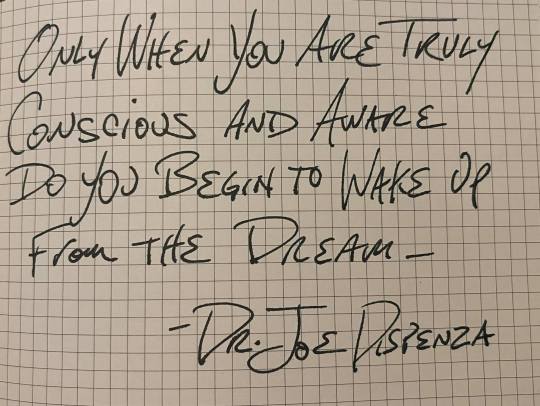 Only When You Are Truly
Conscious And Aware
Do You Begin To Wake Up
From The Dream—
- Dr. Joe Dispenza